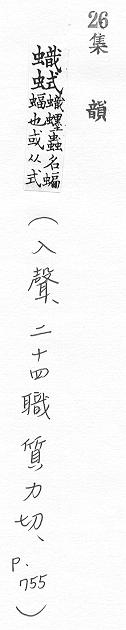 26
集韻
蟙
蟙䘃蟲名蝙
蝠也或从式
（入聲、二十四職 質力切、p.755）